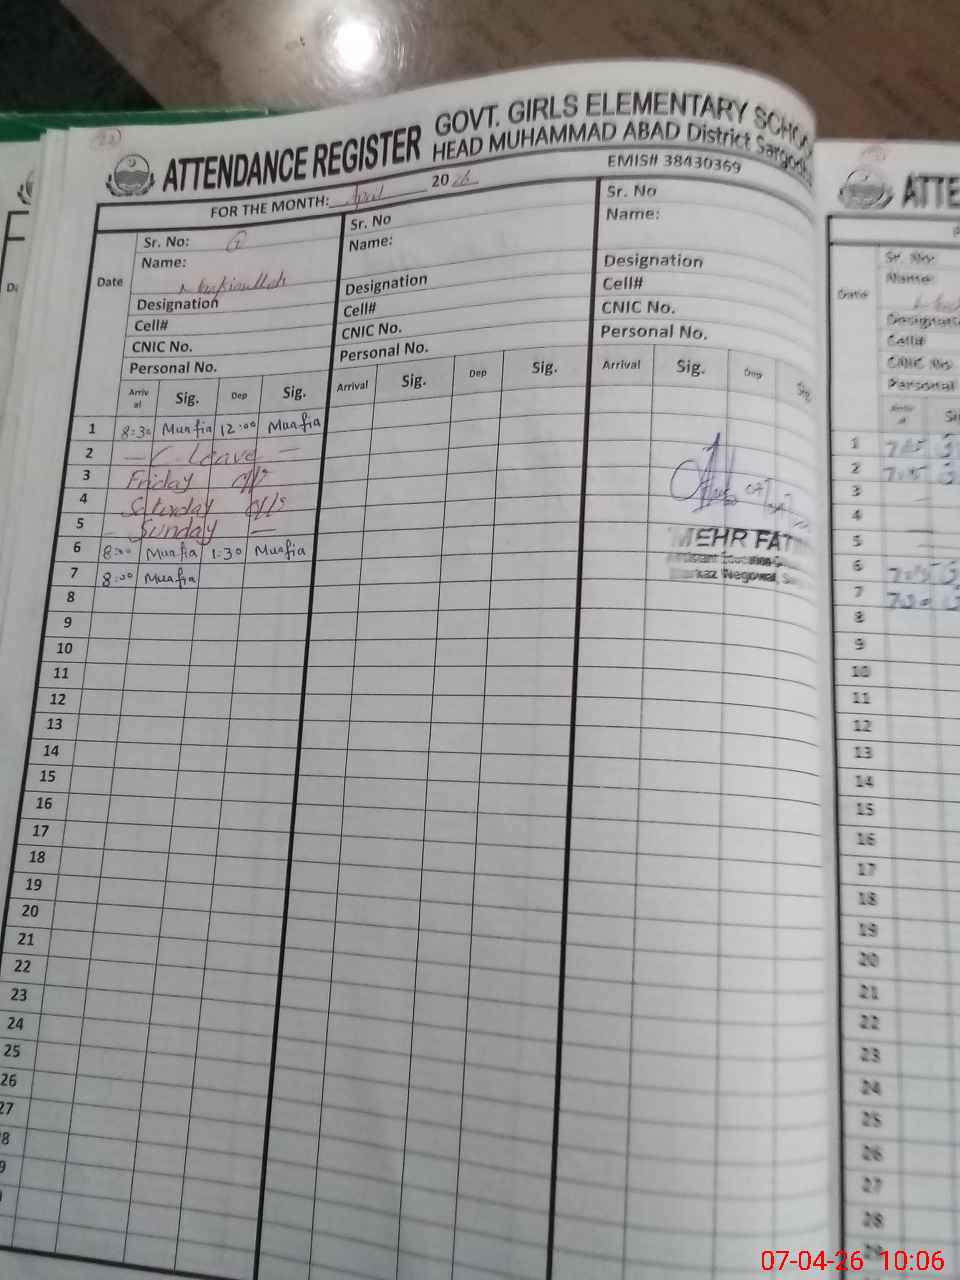 ATTENDANCE REGISTER
GOVT. GIRLS ELEMENTARY SCHOO
HEAD MUHAMMAD ABAD District Sargodha
EMIS# 38430369
FOR THE MONTH: April 2026
Date
Sr. No:
Name:
Designation
Cell#
CNIC No.
Personal No.
Sr. No
Name:
Designation
Cell#
CNIC No.
Personal No.
Sr. No
Name:
Designation
Cell#
CNIC No.
Personal No.
Arriv al Sig. Dep Sig. Arrival Sig. Dep Sig. Arrival Sig. Dep Sig.
1 8:30 Munfia 12:00 Munfia
2 — C. Leave —
3 Friday off
4 Saturday off
5 — Sunday —
6 8:00 Munfia 1:30 Munfia
7 8:00 Munfia
8
9
10
11
12
13
14
15
16
17
18
19
20
21
22
23
24
25
26
27
8
9
MEHR FAT
Assistant Education
Markaz
ATTE
Date
Sr. No:
Name:
Designatio
Cell#
CNIC No.
Personal
1
2
3
4
5
6
7
8
9
10
11
12
13
14
15
16
17
18
19
20
21
22
23
24
25
26
27
28
07-04-26 10:06